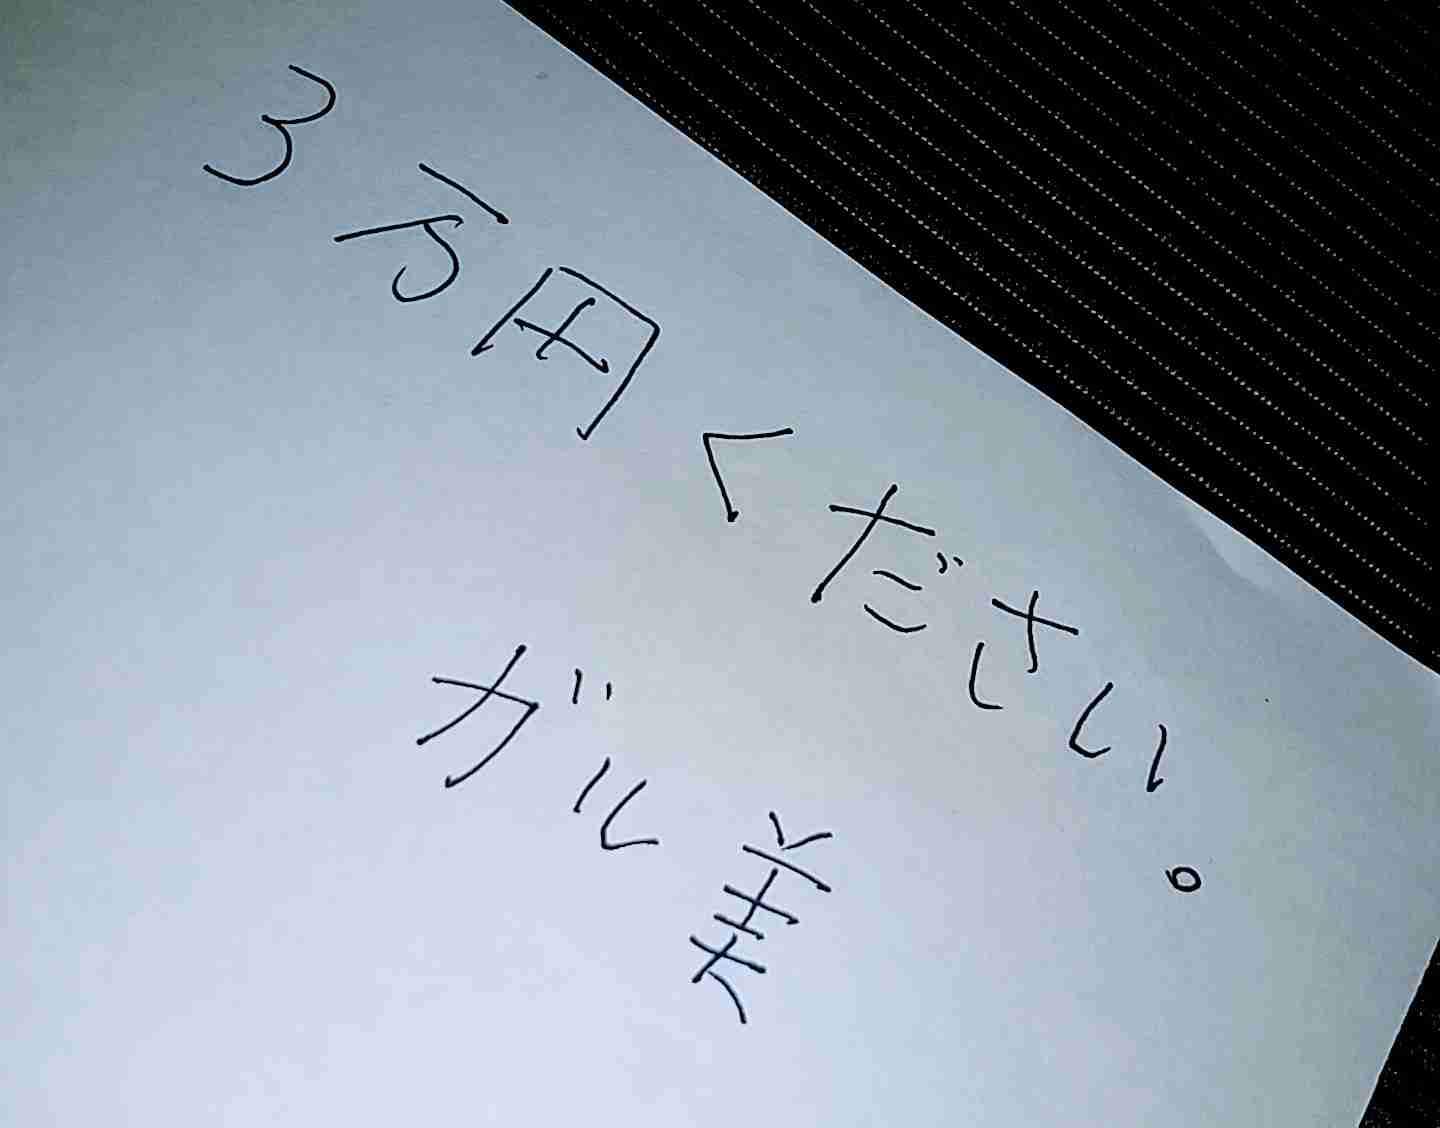 3万円ください。
ガル美